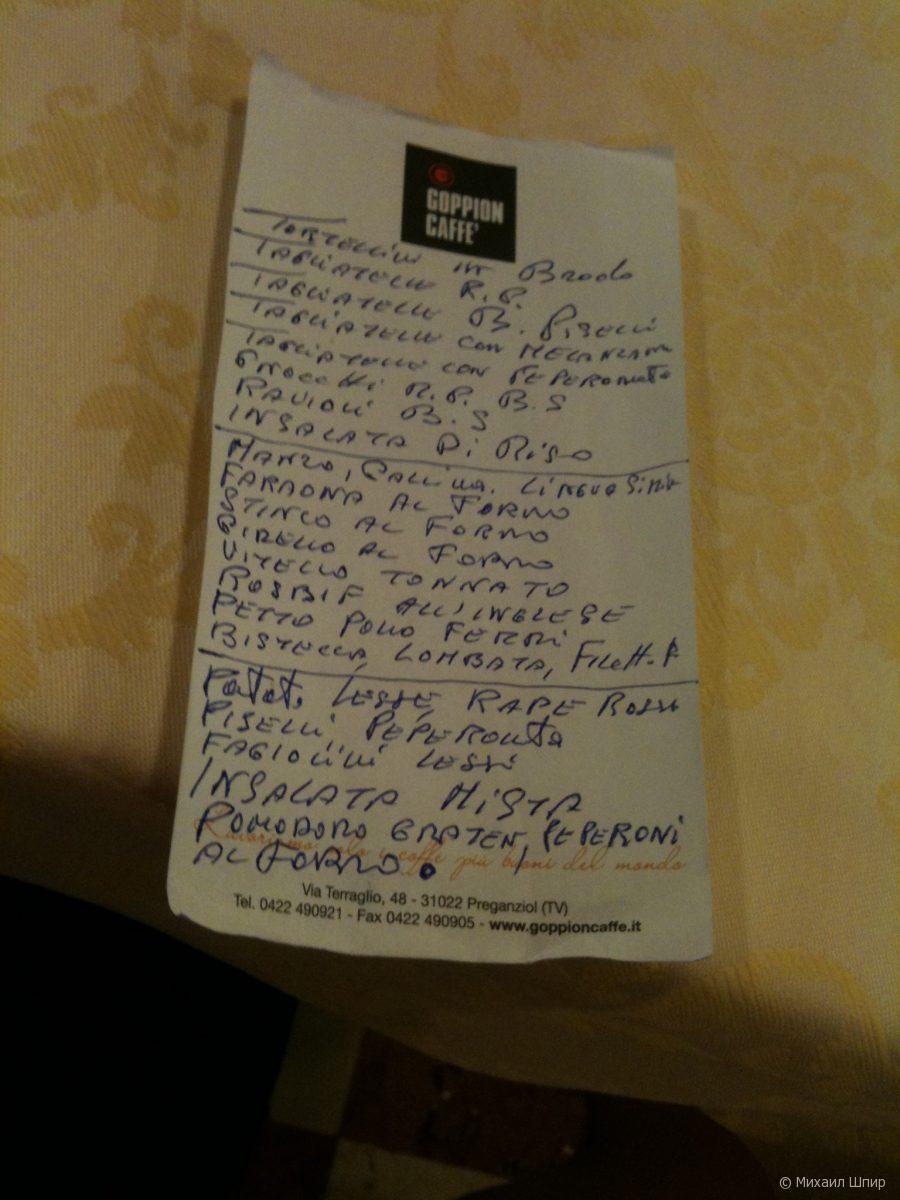 GOPPION
CAFFE'
TORTELLINI IN BRODO
TAGLIATELLE R.P.
TAGLIATELLE B. PISELLI
TAGLIATELLE CON MELANZANE
TAGLIATELLE CON PEPERONATA
GNOCCHI R.P. B.S
RAVIOLI B.S
INSALATA DI RISO
MANZO, GALLINA. LINGUA
FARAONA AL FORNO
STINCO AL FORNO
GIRELLO AL FORNO
VITELLO TONNATO
ROSBIF ALL'INGLESE
PETTO POLLO FERRI
BISTECCA, LOMBATA,
LESSE, RAPE ROSSE
PISELLI, PEPERONATA
FAGIOLINI LESSI
INSALATA MISTA
POMODORO GRATEN, PEPERONI
AL FORNO.
i caffè più buoni del mondo
Via Terraglio, 48 - 31022 Preganziol (TV)
Tel. 0422 490921 - Fax 0422 490905 - www.goppioncaffe.it
© Михаил Шпир